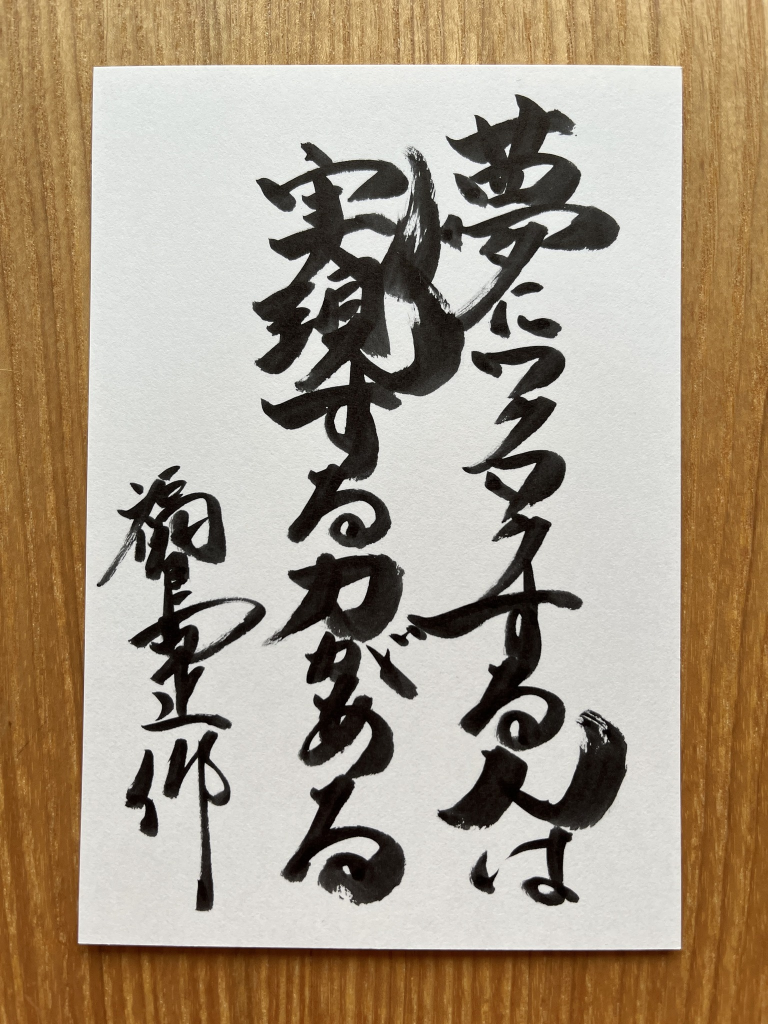 夢にワクワクする人は
実現する力がある
福島正伸